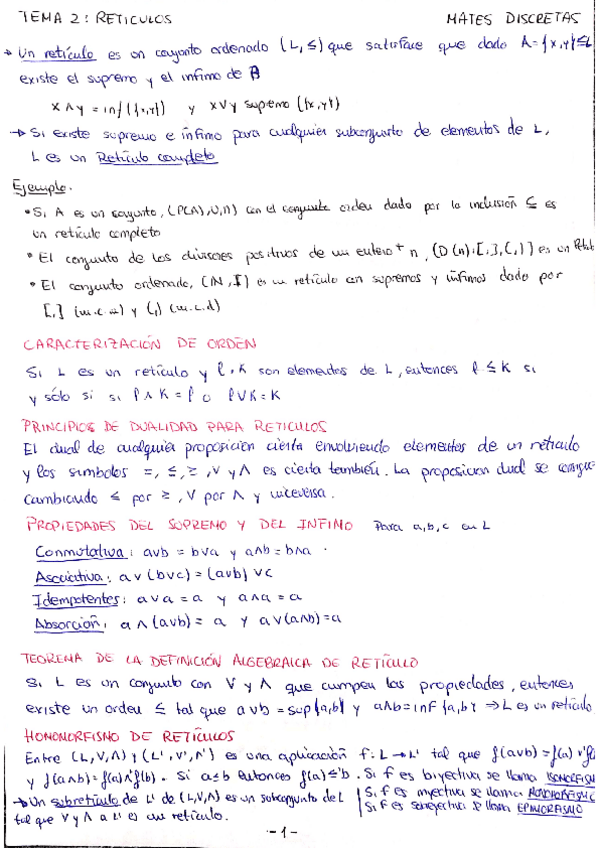 TEMA 2: RETICULOS MATES DISCRETAS
→ Un retículo es un conjunto ordenado (L,≤) que satisface que dado A={x,y}⊆L
existe el supremo y el infimo de A
x∧y = inf({x,y}) y x∨y supremo ({x,y})
→ Si existe supremo e ínfimo para cualquier subconjunto de elementos de L,
L es un Retículo completo
Ejemplo.
• Si A es un conjunto, (P(A),∪,∩) con el conjunto orden dado por la inclusión ⊆ es
un retículo completo
• El conjunto de los divisores positivos de un entero⁺ n, (D(n),[,],(,)) es un
• El conjunto ordenado, (ℕ, I) es un retículo con supremos y ínfimos dado por
[,] (m.c.m) y (,) (m.c.d)
CARACTERIZACIÓN DE ORDEN
Si L es un retículo y l, k son elementos de L, entonces l ≤ k si
y sólo si si l∧k = l o l∨k = k
PRINCIPIOS DE DUALIDAD PARA RETICULOS
El dual de cualquier proposición cierta envolviendo elementos de un retículo
y los simbolos =, ≤, ≥, ∨ y ∧ es cierta también. La proposicion dual se consigue
cambiando ≤ por ≥, ∨ por ∧ y viceversa.
PROPIEDADES DEL SUPREMO Y DEL INFIMO Para a,b,c en L
Conmutativa: a∨b = b∨a y a∧b = b∧a.
Asociativa: a∨(b∨c) = (a∨b)∨c
Idempotentes: a∨a = a y a∧a = a
Absorción: a∧(a∨b) = a y a∨(a∧b) = a
TEOREMA DE LA DEFINICIÓN ALGEBRAICA DE RETÍCULO
Si L es un conjunto con ∨ y ∧ que cumpen las propiedades, entonces
existe un orden ≤ tal que a∨b = sup{a,b} y a∧b = inf{a,b} ⇒ L es un retículo
HOMOMORFISMO DE RETÍCULOS
Entre (L,∨,∧) y (L',∨',∧') es una aplicación f: L→L' tal que f(a∨b) = f(a)∨'f(
y f(a∧b) = f(a)∧'f(b). Si a≤b entonces f(a)≤'b. Si f es biyectiva se llama ISOMORFISMO
→ Un subretículo de L' de (L,∨,∧) es un subconjunto de L | Si f es inyectiva se llama MONOMORFISMO
tal que ∨ y ∧ a L' es un retículo. | Si f es sobreyectiva se llama EPIMORFISMO
-1-